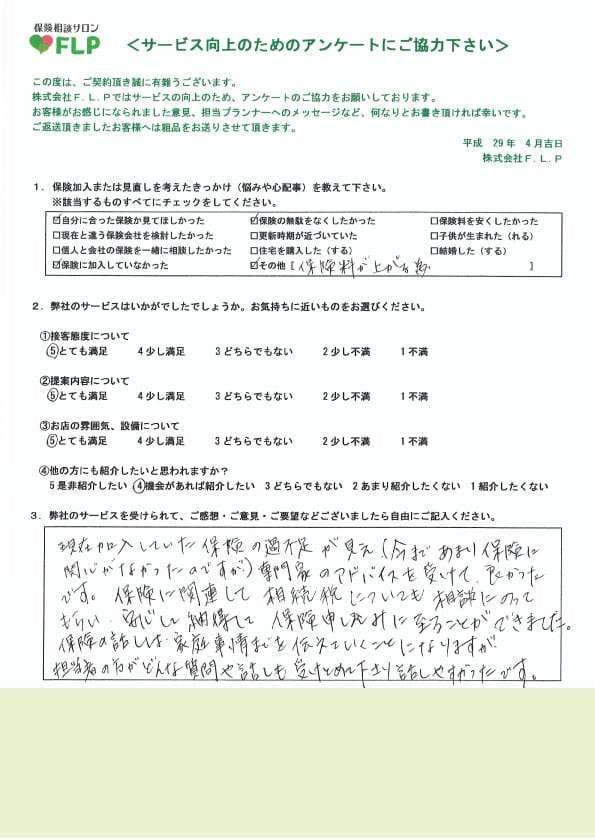 保険相談サロン
FLP
＜サービス向上のためのアンケートにご協力下さい＞
この度は、ご契約頂き誠に有難うございます。
株式会社Ｆ．Ｌ．Ｐではサービスの向上のため、アンケートのご協力をお願いしております。
お客様がお感じになられました意見、担当プランナーへのメッセージなど、何なりとお書き頂ければ幸いです。
ご返送頂きましたお客様へは粗品をお送りさせて頂きます。
平成 29年 4月吉日
株式会社Ｆ．Ｌ．Ｐ
１．保険加入または見直しを考えたきっかけ（悩みや心配事）を教えて下さい。
※該当するものすべてにチェックをしてください。
☑自分に合った保険か見てほしかった ☑保険の無駄をなくしたかった □保険料を安くしたかった
□現在と違う保険会社を検討したかった □更新時期が近づいていた □子供が生まれた（れる）
□個人と会社の保険を一緒に相談したかった □住宅を購入した（する） □結婚した（する）
☑保険に加入していなかった ☑その他［保険料が上がる為 ］
２．弊社のサービスはいかがでしたでしょうか。お気持ちに近いものをお選びください。
①接客態度について
⑤とても満足 4少し満足 3どちらでもない 2少し不満 1不満
②提案内容について
⑤とても満足 4少し満足 3どちらでもない 2少し不満 1不満
③お店の雰囲気、設備について
⑤とても満足 4少し満足 3どちらでもない 2少し不満 1不満
④他の方にも紹介したいと思われますか？
5是非紹介したい ④機会があれば紹介したい 3どちらでもない 2あまり紹介したくない 1紹介したくない
３．弊社のサービスを受けられて、ご感想・ご意見・ご要望などございましたら自由にご記入ください。
現在加入していた保険の過不足が見え（今まであまり保険に
関心がなかったのですが）専門家のアドバイスを受けて、良かった
です。保険に関連して相続税についても相談にのって
もらい、安心して納得して保険申し込みに至ることができました。
保険の話しは、家庭事情までを伝えていくことになりますが
担当者の方がどんな質問や話しも受けとめて下さり話しやすかったです。